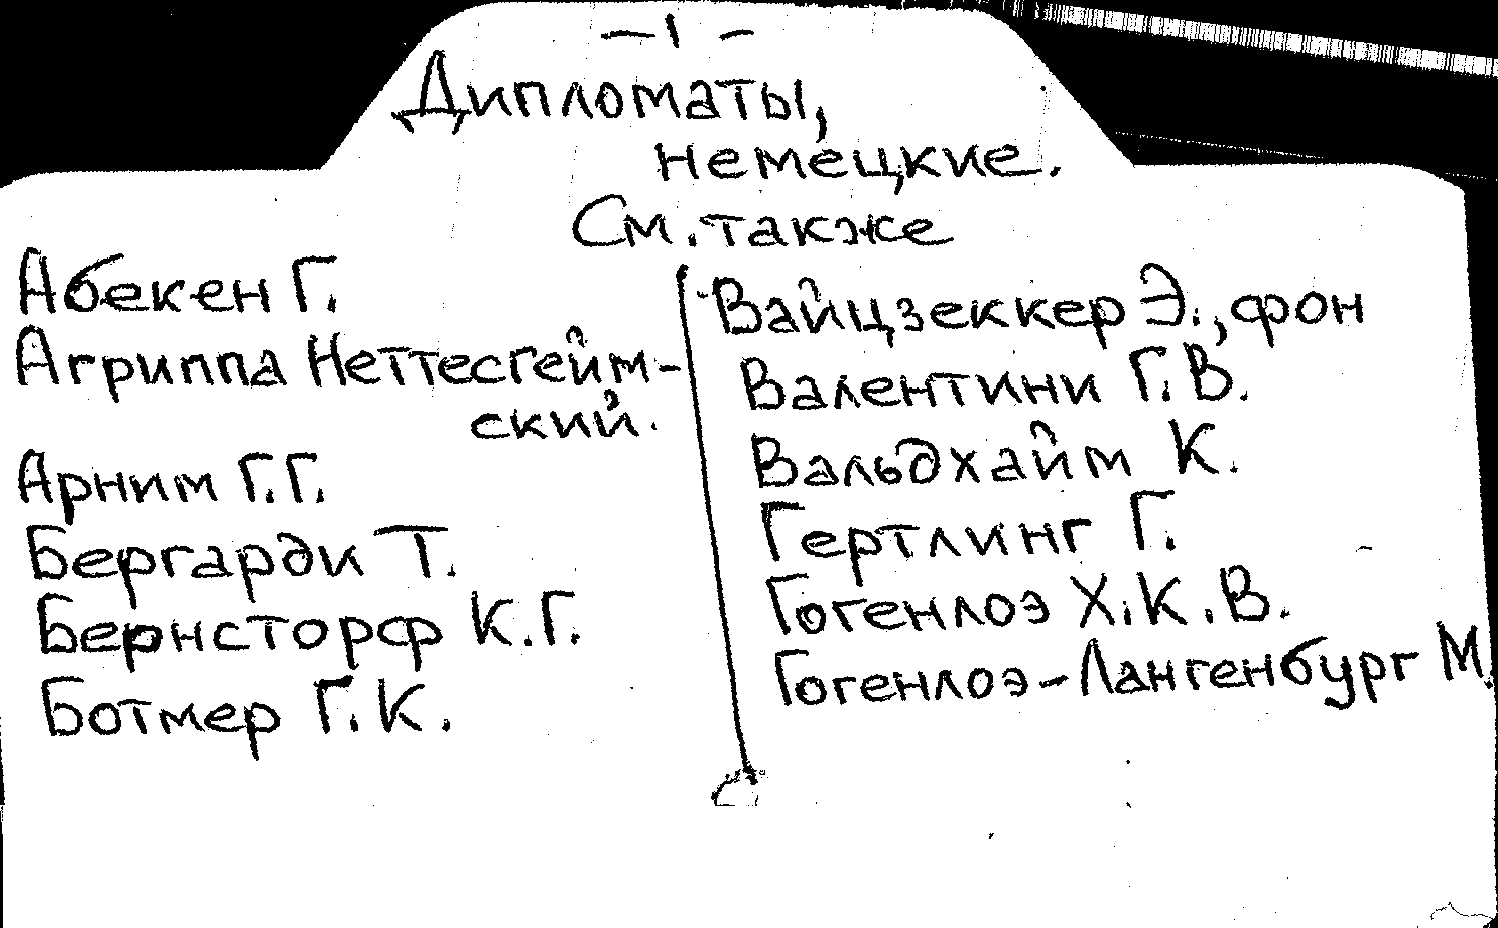 — 1 —
Дипломаты,
немецкие.
См. также
Абекен Г.
Агриппа Неттесгейм-
ский.
Арним Г.Г.
Бергарди Т.
Бернсторф К.Г.
Ботмер Г.К.
Вайцзеккер Э., фон
Валентини Г.В.
Вальдхайм К.
Гертлинг Г.
Гогенлоэ Х.К.В.
Гогенлоэ-Лангенбург М.